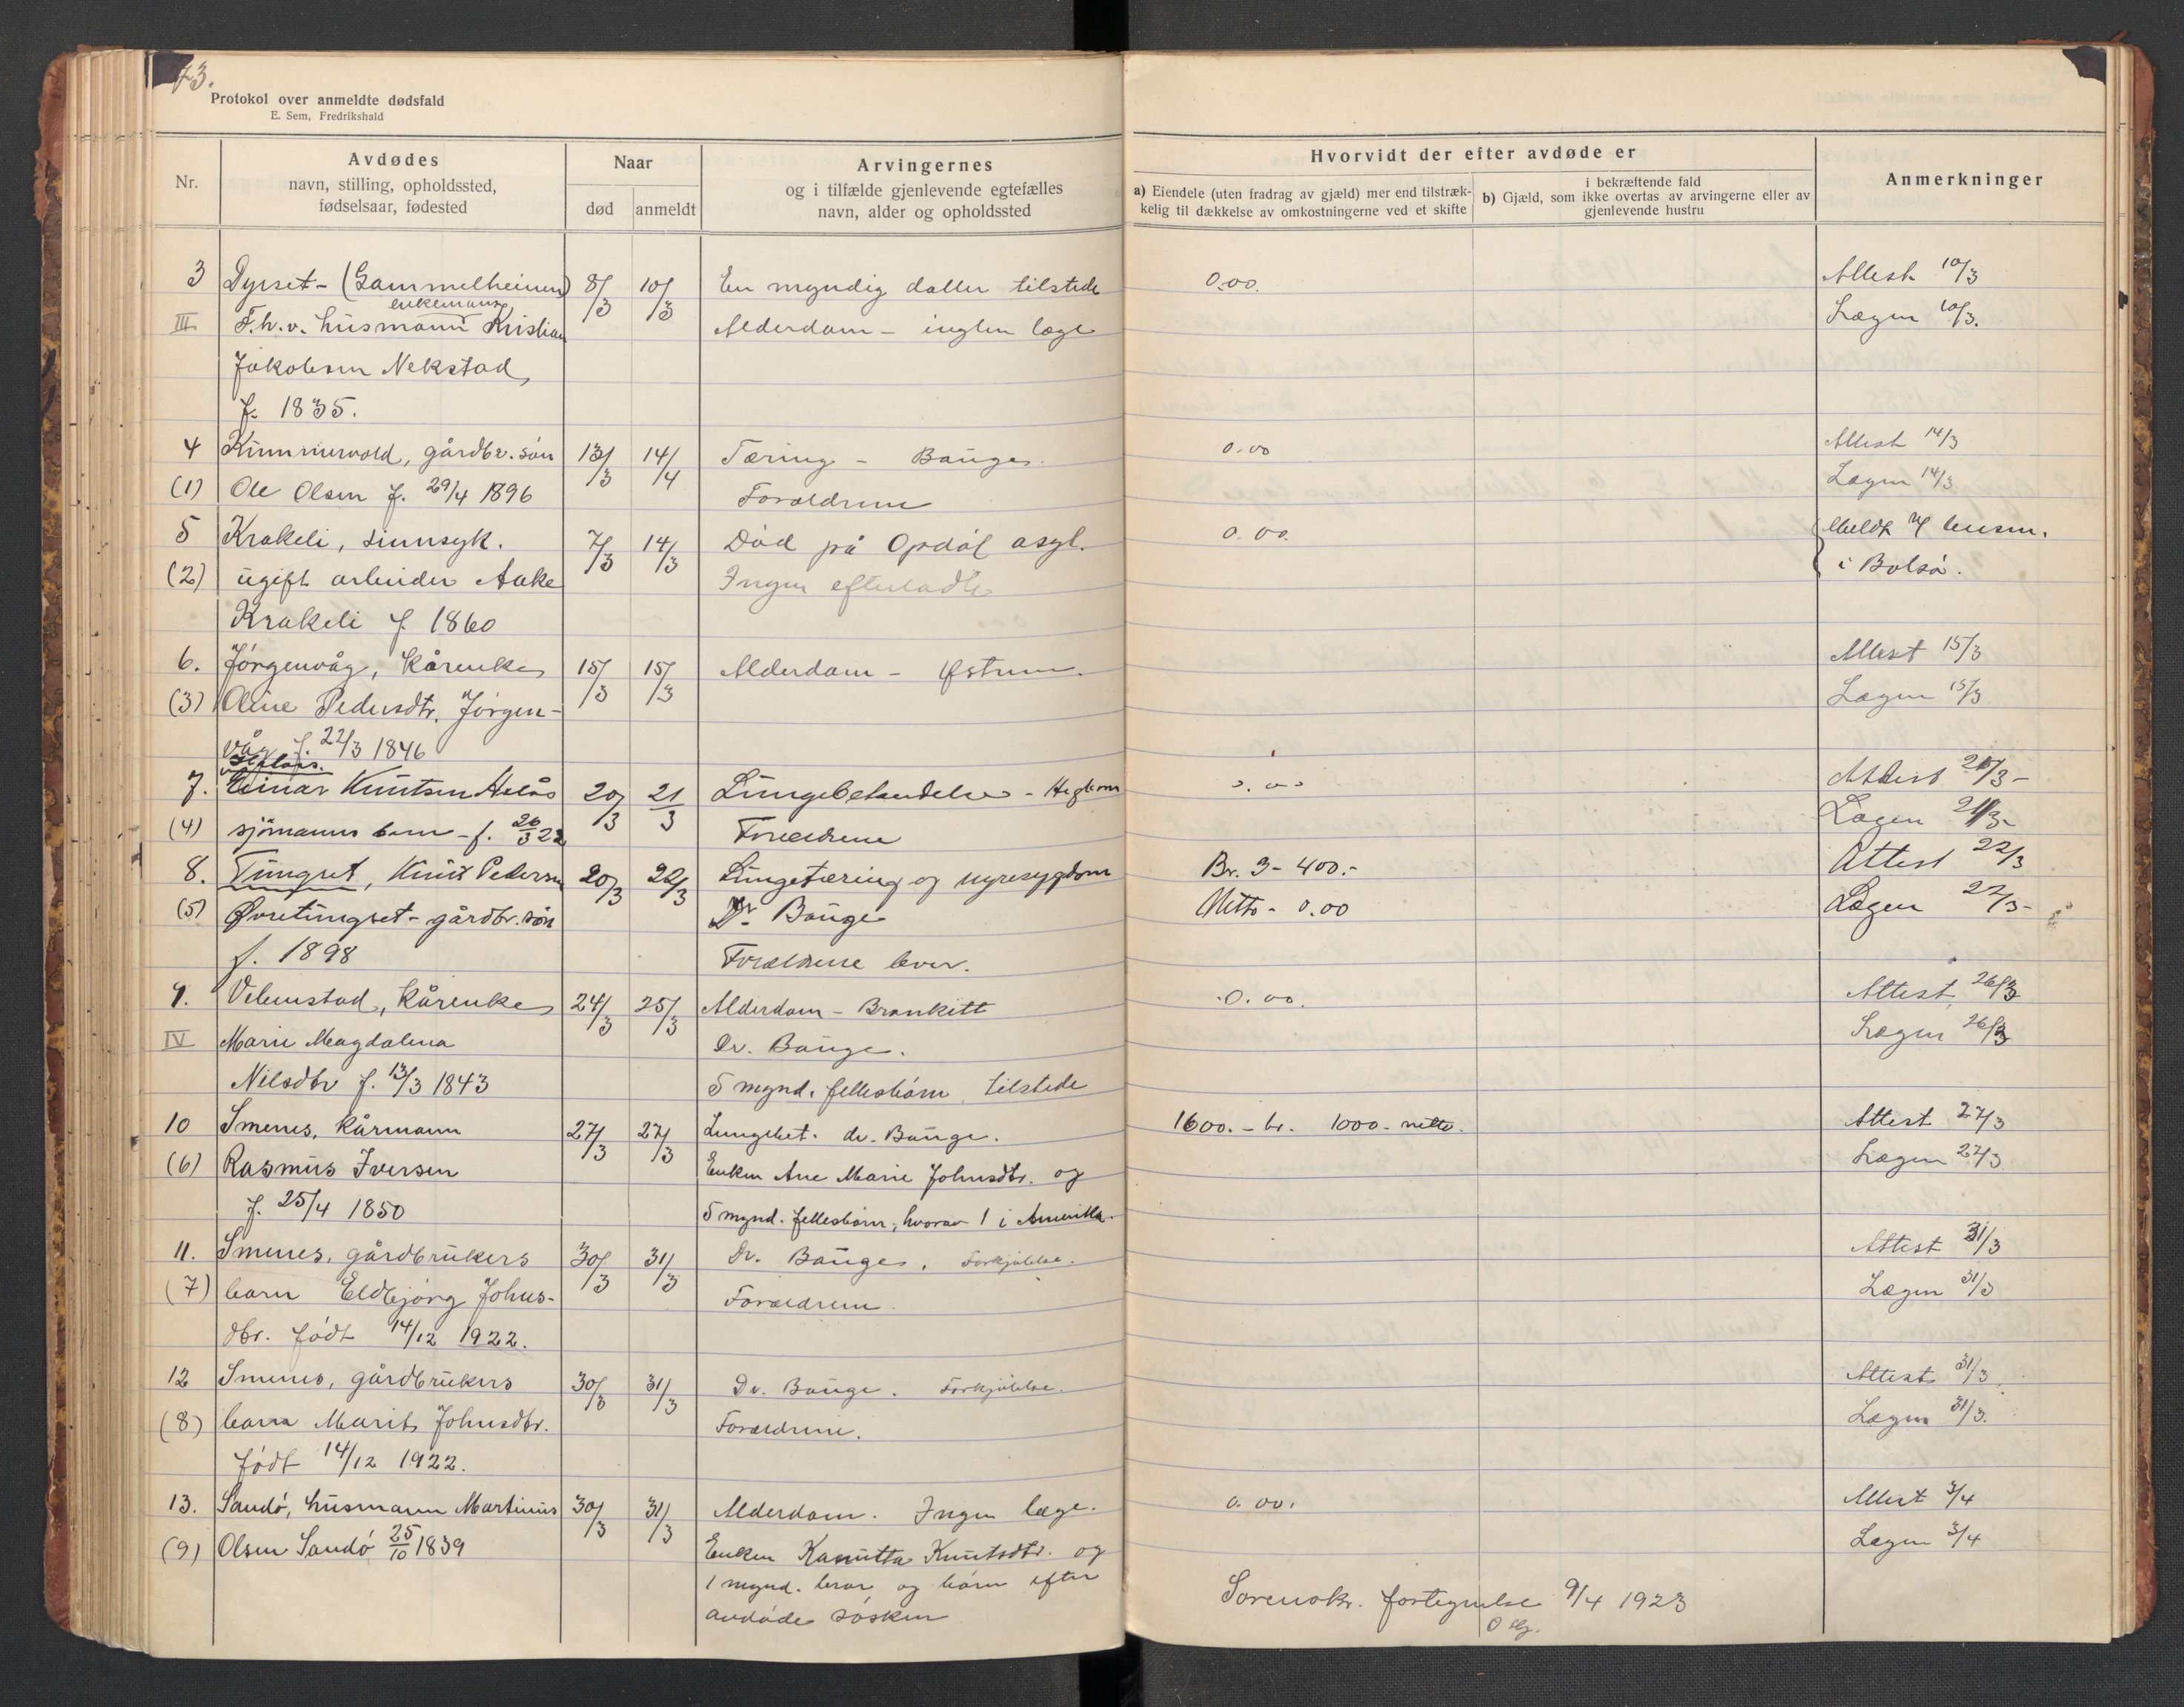 73.
Protokol over anmeldte dødsfald
E. Sem, Fredrikshald
Nr.
Avdødes
navn, stilling, opholdssted,
fødselsaar, fødested
Naar
død
anmeldt
Arvingernes
og i tilfælde gjenlevende egtefælles
navn, alder og opholdssted
Hvorvidt der efter avdøde er
a) Eiendele (uten fradrag av gjæld) mer end tilstræk-
kelig til dækkelse av omkostningerne ved et skifte
i bekræftende fald
b) Gjæld, som ikke overtas av arvingerne eller av
gjenlevende hustru
Anmerkninger
3 Dyrset - (Gammelheimen) 8/3 10/3 En myndig datter tilstede 0.00. Attest 10/3
enkemann
III F.h.v. husmann Kristian Alderdom - ingen læge Lægen 10/3.
Jakobsen Nekstad,
f. 1835.
4 Kimmervold, gårdbr. søn 13/3 14/4 Tæring - Bauge. 0.00 Attest 14/3
(1) Ole Olsen f. 29/4 1896 Forældrene Lægen 14/3
5 Krakeli, sinnsyk. 7/3 14/3 Død på Opdøl asyl. 0.00. Meldt lensm.
(2) ugift arbeider Aake Ingen efterladte i Bolsø.
Krakeli f. 1860
6. Jørgenvåg, kårenke 15/3 15/3 Alderdom - Østrem. Attest 15/3
(3) Oline Pedersdtr. Jørgen- Lægen 15/3
våg f. 22/3 1846
7. Einar Knutsen 20/3 21/3 Lungebetendelse - 0.00 Attest 21/3-
(4) sjømanns barn - f. 26/3 22 Forældrene Lægen 21/3-
8. Tungset, Knut Pedersen 20/3 22/3 Lungetæring og nyresygdom Br. 3-400.- Attest 22/3
(5) Øvretungset - gårdbr. søn Dr Bauge Netto - 0.00 Lægen 22/3-
f. 1898 Forældrene lever.
9. Vebenstad, kårenke 24/3 25/3 Alderdom - Bronkitt 0.00. Attest 26/3
IV Marie Magdalena Dr. Bauge. Lægen 26/3
Nilsdtr f. 13/3 1843 5 mynd. fellesbørn tilstede
10 Smenes, kårmann 27/3 27/3 Lungebet. dr. Bauge. 1600.- br. 1000.- netto. Attest 27/3
(6) Rasmus Iversen Enken Ane Marie Johnsdtr. og Lægen 27/3
f. 25/4 1850 5 mynd. fellesbørn, hvorav 1 i Amerika.
11. Smenes, gårdbrukers 30/3 31/3 Dr. Bauge. Forkjølelse. Attest 31/3
(7) barn Eldbjørg Johns- Forældrene Lægen 31/3
dtr. født 14/12 1922.
12 Smenes, gårdbrukers 30/3 31/3 Dr. Bauge. Forkjølelse. Attest 31/3
(8) barn Marit Johnsdtr. Forældrene. Lægen 31/3.
født 14/12 1922.
13. Sandø, husmann Martinus 30/3 31/3 Alderdom. Ingen læge. 0.00. Attest 3/4
(9) Olsen Sandø 25/10 1839 Enken Kanutta Knutsdtr. og Lægen 3/4
1 mynd. bror og børn efter
avdøde søsken
Sorenskr. fortegnelse 9/4 1923